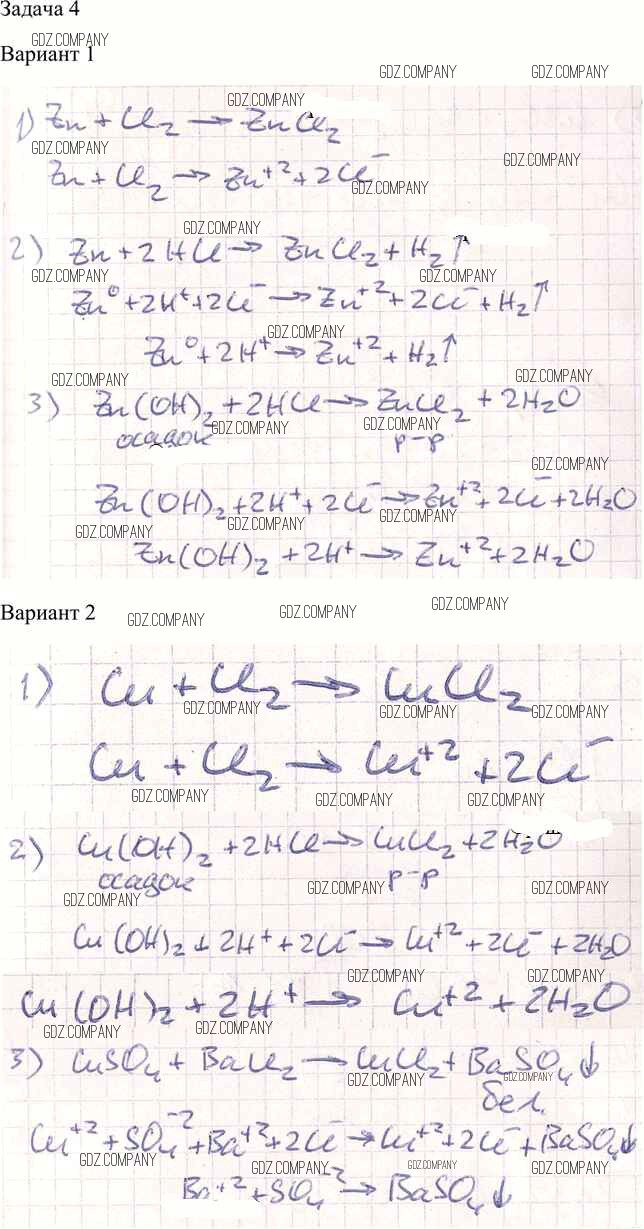 Задача 4
GDZ.COMPANY
Вариант 1
GDZ.COMPANY GDZ.COMPANY
GDZ.COMPANY
1) Zn + Cl₂ → ZnCl₂
GDZ.COMPANY GDZ.COMPANY
Zn + Cl₂ → Zn⁺² + 2Cl⁻
GDZ.COMPANY
GDZ.COMPANY
2) Zn + 2HCl → ZnCl₂ + H₂↑
GDZ.COMPANY GDZ.COMPANY
Zn⁰ + 2H⁺ + 2Cl⁻ → Zn⁺² + 2Cl⁻ + H₂↑
GDZ.COMPANY
Zn⁰ + 2H⁺ → Zn⁺² + H₂↑
GDZ.COMPANY GDZ.COMPANY
3) Zn(OH)₂ + 2HCl → ZnCl₂ + 2H₂O
GDZ.COMPANY GDZ.COMPANY
осадок р-р
GDZ.COMPANY
Zn(OH)₂ + 2H⁺ + 2Cl⁻ → Zn⁺² + 2Cl⁻ + 2H₂O
GDZ.COMPANY GDZ.COMPANY GDZ.COMPANY
Zn(OH)₂ + 2H⁺ → Zn⁺² + 2H₂O
Вариант 2
GDZ.COMPANY GDZ.COMPANY GDZ.COMPANY
1) Cu + Cl₂ → CuCl₂
GDZ.COMPANY GDZ.COMPANY GDZ.COMPANY
Cu + Cl₂ → Cu⁺² + 2Cl⁻
GDZ.COMPANY GDZ.COMPANY GDZ.COMPANY
2) Cu(OH)₂ + 2HCl → CuCl₂ + 2H₂O
осадок р-р
GDZ.COMPANY GDZ.COMPANY GDZ.COMPANY
Cu(OH)₂ + 2H⁺ + 2Cl⁻ → Cu⁺² + 2Cl⁻ + 2H₂O
GDZ.COMPANY GDZ.COMPANY
Cu(OH)₂ + 2H⁺ → Cu⁺² + 2H₂O
GDZ.COMPANY GDZ.COMPANY
3) CuSO₄ + BaCl₂ → CuCl₂ + BaSO₄↓
GDZ.COMPANY GDZ.COMPANY
бел.
Cu⁺² + SO₄⁻² + Ba⁺² + 2Cl⁻ → Cu⁺² + 2Cl⁻ + BaSO₄↓
GDZ.COMPANY GDZ.COMPANY GDZ.COMPANY GDZ.COMPANY
Ba⁺² + SO₄⁻² → BaSO₄↓